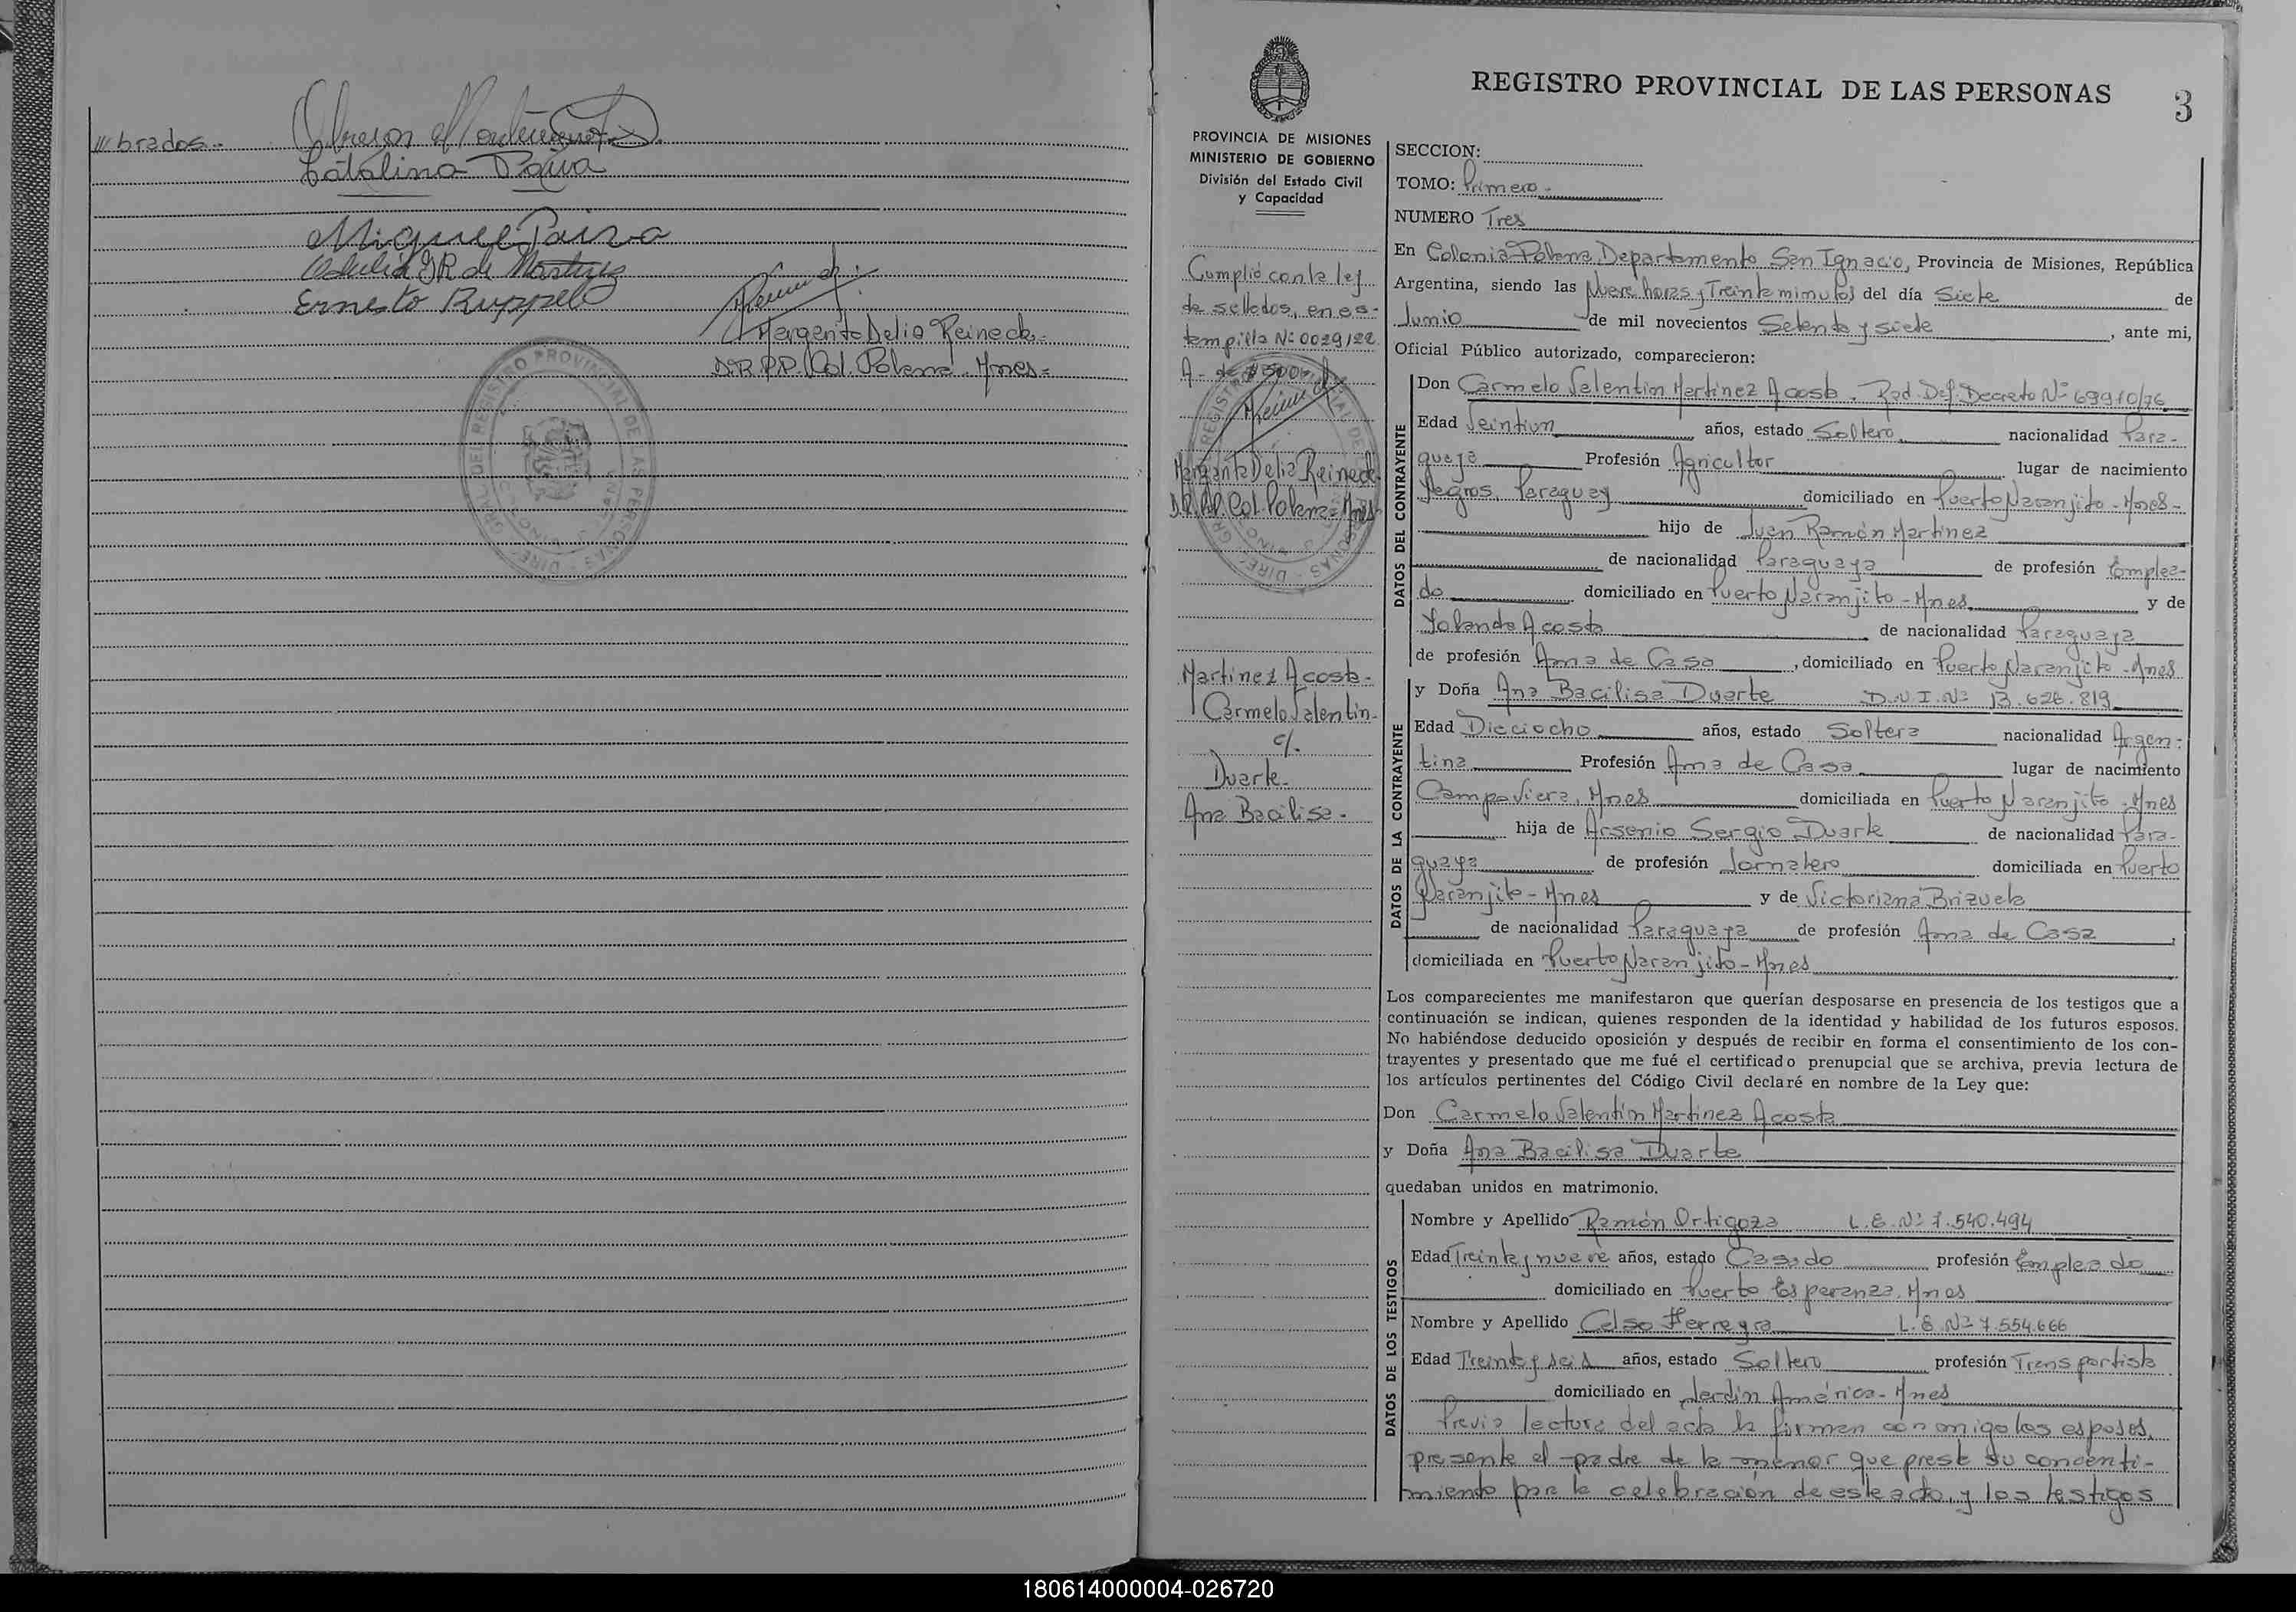 ///brados.-
Catalina Paiva
Miguel Paiva
Obdulia G R de Martinez
Ernesto Ruppel
Margarita Delia Reineck.
D.R.P.P. Col. Polana - Mnes=
REGISTRO PROVINCIAL DE LAS PERSONAS
3
PROVINCIA DE MISIONES
MINISTERIO DE GOBIERNO
División del Estado Civil
y Capacidad
Cumplió con la ley
de sellados, en es-
tampilla Nº 0029122
A- de $ 500
Margarita Delia Reineck
D.R.P.P. Col. Polana = Mnes
Martinez Acosta-
Carmelo Valentin-
c/.
Duarte-
Ana Bacilisa-
SECCION:
TOMO: Primero-
NUMERO Tres
En Colonia Polana, Departamento San Ignacio, Provincia de Misiones, República
Argentina, siendo las Nueve horas y Treinta minutos del día Siete de
Junio de mil novecientos Setenta y siete, ante mi,
Oficial Público autorizado, comparecieron:
DATOS DEL CONTRAYENTE
Don Carmelo Valentin Martinez Acosta. Rad. Def. Decreto Nº 69910/76
Edad Veintiun años, estado Soltero nacionalidad Para-
guaya Profesión Agricultor lugar de nacimiento
Negros, Paraguay domiciliado en Puerto Naranjito - Mnes-
hijo de Juan Ramón Martinez
de nacionalidad Paraguaya de profesión Emplea-
do domiciliado en Puerto Naranjito - Mnes y de
Yolanda Acosta de nacionalidad Paraguaya
de profesión Ama de Casa, domiciliado en Puerto Naranjito - Mnes
DATOS DE LA CONTRAYENTE
y Doña Ana Bacilisa Duarte D.N.I. Nº 13.626.819
Edad Dieciocho años, estado Soltera nacionalidad Argen-
tina Profesión Ama de Casa lugar de nacimiento
Campo Viera, Mnes domiciliada en Puerto Naranjito - Mnes
hija de Arsenio Sergio Duarte de nacionalidad Para-
guaya de profesión Jornalero domiciliada en Puerto
Naranjito - Mnes y de Victoriana Brizuela
de nacionalidad Paraguaya de profesión Ama de Casa,
domiciliada en Puerto Naranjito - Mnes
Los comparecientes me manifestaron que querían desposarse en presencia de los testigos que a
continuación se indican, quienes responden de la identidad y habilidad de los futuros esposos.
No habiéndose deducido oposición y después de recibir en forma el consentimiento de los con-
trayentes y presentado que me fué el certificado prenupcial que se archiva, previa lectura de
los artículos pertinentes del Código Civil declaré en nombre de la Ley que:
Don Carmelo Valentin Martinez Acosta
y Doña Ana Bacilisa Duarte
quedaban unidos en matrimonio.
DATOS DE LOS TESTIGOS
Nombre y Apellido Ramón Ortigoza L.E. Nº 7.540.494
Edad Treinta y nueve años, estado Casado profesión Empleado
domiciliado en Puerto Esperanza, Mnes
Nombre y Apellido Celso Ferreyra L.E. Nº 7.554.666
Edad Treinta y seis años, estado Soltero profesión Transportista
domiciliado en Jardin América - Mnes
Previa lectura del acta la firman conmigo los esposos,
presente el padre de la menor que presta su concenti-
miento par la celebración de este acto, y los testigos
180614000004-026720